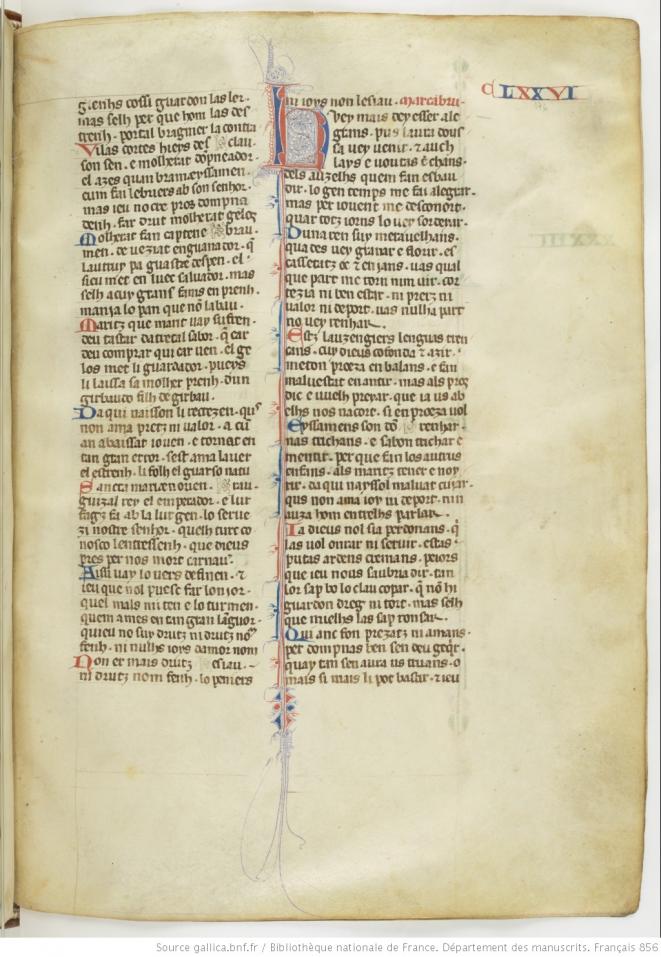 g,enhs cossi guardon las ler.
mas selh per que hom las des
trenh. portal braguier la contra
Vilas cortes hiers de clau.
son sen. e molherat dompneador.
el azes quan bramen
cum fai lebriers ab son senhor.
mas ieu no cre pros compna
denh. far drut molherat gelos
Molherat fan captene brau.
men. de vezrat enguanador. q̄
lautruy pa guasta e despen. el
sieu met en luec salvador. mas
selh a cuy grans fams en prenh.
manja lo pan que nō labau.
Maritz que mant vay sufren.
deu tastar datretal sabor. q̄ car
deu comprar qui car ven. el ge
los met li guardador. pueys
li laissa sa molher prenh. dun
girbauto filh de girbau.
Da qui naisson li recrezen. qus
non ama pretz ni valor. a cū
an abaissar ioven. e tornat en
tan gran error. sest ama lauer
el estrenh. li folh el guarso natu
Sancta marien orien. trau.
guizal rey el emperador. e lur
fagz fa ab la lur gen. lo serve
zi nostre senhor. quelh turc co
nosco lentressenh. que dieus
pres per nos mort carnau.
Aissi vay lo vers definen. 
ieu que nol puesc far lonior.
quel mals mi ten e lo turmen.
quem a mes en tan gran languor.
quieu no suy drutz ni drutz no
fenh. ni nulhs ioys damor nom
Non er mais drutz esiau.
ni drutz nom fenh. lo peniers
ni ioys non lesiau. marcabru.
Bey mais dey esser ale
grans. pus laura dous
sa vey venir. & auch
lays e voutas e chans.
dels auzelhs quem fan esbau
dir. lo gen temps me fai alegrar.
mas per iovent me desconort.
quar totz iorns lo vey sordeiir.
Duna ren suy meravelhans.
quades vey granar e florir. es
cassetatz & enjans. vas qual
que part me torn ni m vir. cor
tezia ni ben estar. ni pretz ni
valor ni deport. vas nulha part
no vey renhar.
Estz lauzengiers lenguas tren
cans. cuy dieus cofonda e azir.
meton proeza en balans. e fan
malvestat enantir. mas als pros
dic e vuelh preyar. que ia us ab
elhs nos nacort. si en proeza vol
Eyssamens son renhar.
nas trichans. e sabon trichar e
mentir. per que fan los autrus
enfans. als maritz tener e noy
rir. da qui nayssol malvat
quis non ama ioy ni deport. ni n
auza hom entrelhs parlar.
Ia dieus nol sia perdonans. q̄
las vol onrar ni servir. estas
putas ardens cremans. peiors
que ieu no us saubria dir. tan
lor sap bo lo clau copar. q̄ nō hi
guardon dreg ni tort. mas selh
que mielhs las sap
Qui anc fon prezatz ni amans.
per dompnas ben sen deu geqir.
quay tan sen aura us truans. o
mais si mais li pot bastir. & ieu
CLXXVI
Source gallica.bnf.fr / Bibliothèque nationale de France. Département des manuscrits. Français 856